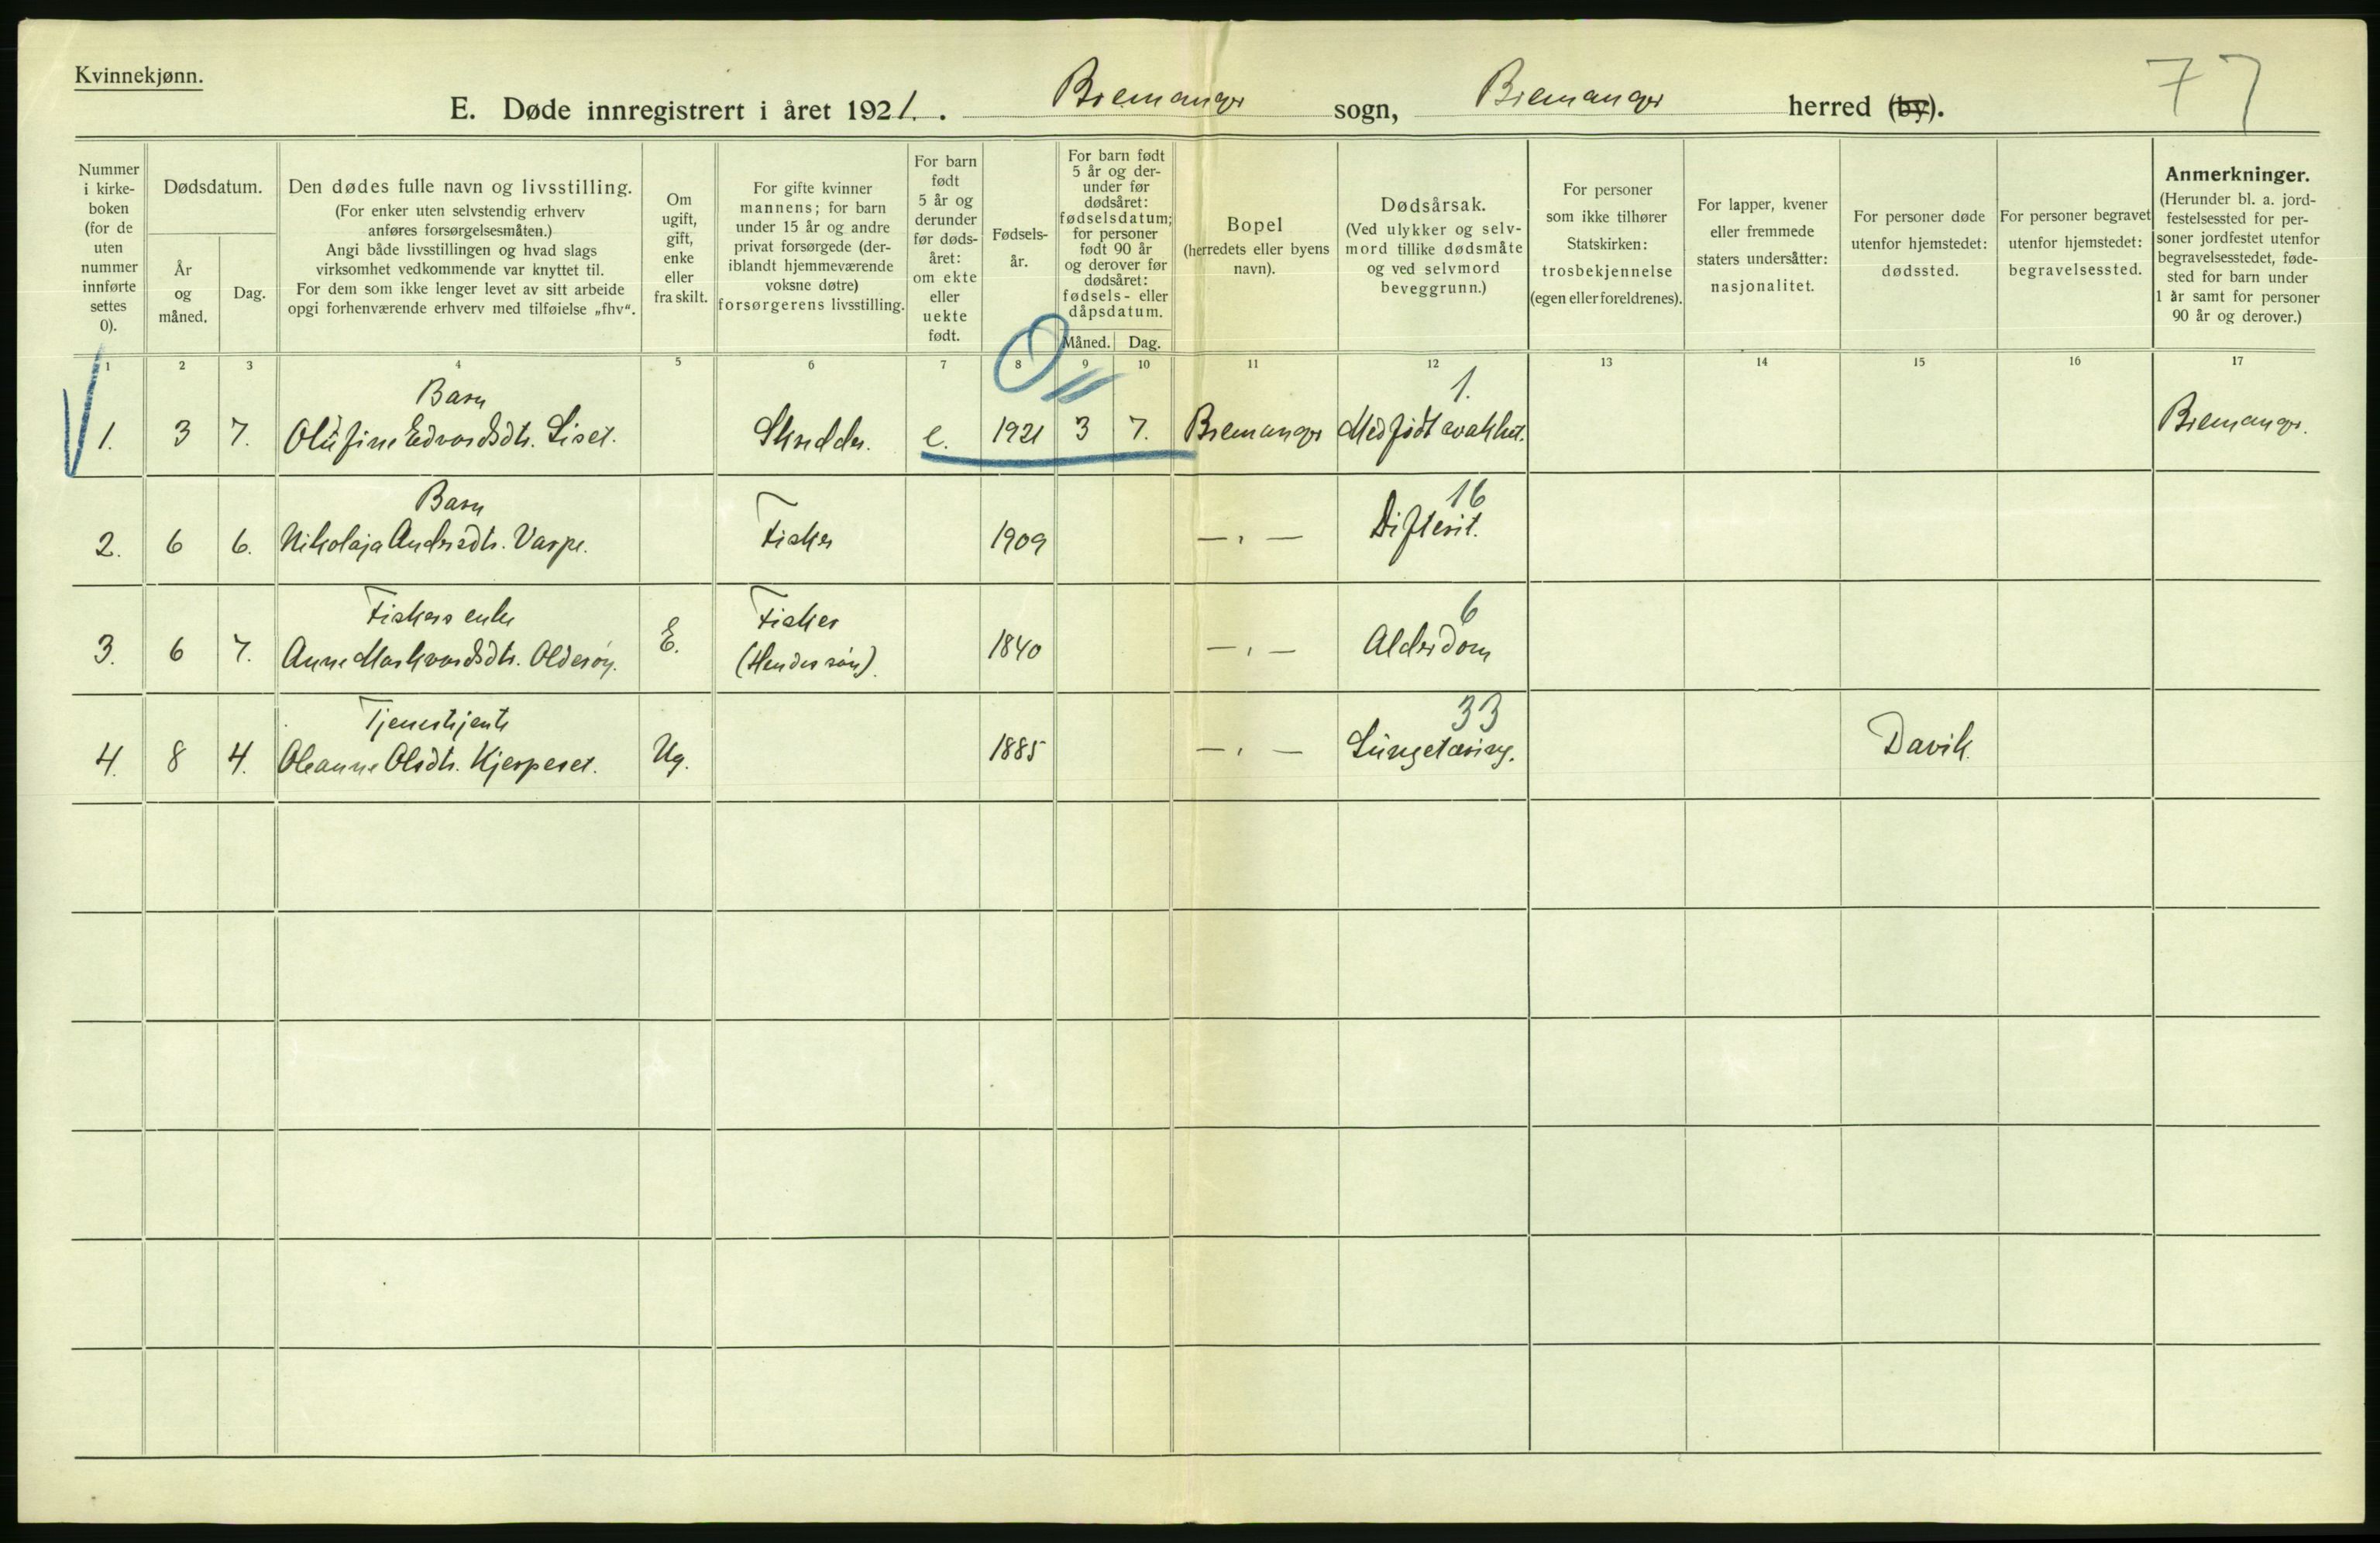 Kvinnekjønn.
E. Døde innregistrert i året 1921. Bremanger sogn, Bremanger herred (by).
77
Nummer
i kirke-
boken
(for de
uten
nummer
innførte
settes
0).
Dødsdatum.
År
og
måned.
Dag.
Den dødes fulle navn og livsstilling.
(For enker uten selvstendig erhverv
anføres forsørgelsesmåten.)
Angi både livsstillingen og hvad slags
virksomhet vedkommende var knyttet til.
For dem som ikke lenger levet av sitt arbeide
opgi forhenværende erhverv med tilføielse „fhv“.
Om
ugift,
gift,
enke
eller
fraskilt.
For gifte kvinner
mannens; for barn
under 15 år og andre
privat forsørgede (der-
iblandt hjemmeværende
voksne døtre)
forsørgerens livsstilling.
For barn
født
5 år og
derunder
før døds-
året:
om ekte
eller
uekte
født.
Fødsels-
år.
For barn født
5 år og der-
under før
dødsåret:
fødselsdatum;
for personer
født 90 år
og derover før
dødsåret:
fødsels- eller
dåpsdatum.
Måned. Dag.
Bopel
(herredets eller byens
navn).
Dødsårsak.
(Ved ulykker og selv-
mord tillike dødsmåte
og ved selvmord
beveggrunn.)
For personer
som ikke tilhører
Statskirken:
trosbekjennelse
(egen eller foreldrenes).
For lapper, kvener
eller fremmede
staters undersåtter:
nasjonalitet.
For personer døde
utenfor hjemstedet:
dødssted.
For personer begravet
utenfor hjemstedet:
begravelsessted.
Anmerkninger.
(Herunder bl. a. jord-
festelsessted for per-
soner jordfestet utenfor
begravelsesstedet, føde-
sted for barn under
1 år samt for personer
90 år og derover.)
1 2 3 4 5 6 7 8 9 10 11 12 13 14 15 16 17
Barn 1.
1. 3 7. Olufine Edvardsdtr. Liset. Skredder. e. 1921 3 7. Bremanger Medfødt svakhet. Bremanger.
Barn 16
2. 6 6. Nikolaja Andersdtr. Varpe. Fisker 1909 — " — Difterit.
Fiskers enke Fisker 6
3. 6 7. Anne Markvardsdtr. Olderøy. E. 1840 — " — Alderdom
Tjenestjente 33
4. 8 4. Oleanne Olsdtr. Kjerpeset. Ug. 1885 — " — Lungetæring. Davik.